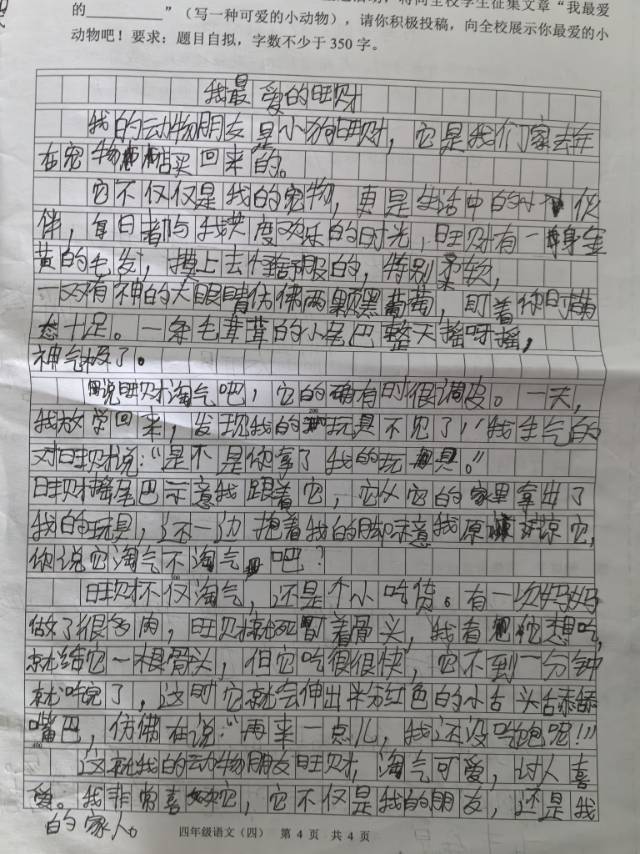 征集文章“我最爱
的__________”（写一种可爱的小动物），请你积极投稿，向全校展示你最爱的小
动物吧！要求：题目自拟，字数不少于 350 字。
我最爱的旺财
我的动物朋友是小狗旺财，它是我们家去年
在宠物店买回来的。
它不仅仅是我的宠物，更是生活中的小伙
伴，每日都与我共度欢乐的时光，旺财有一身金
黄的毛发，摸上去舒服的，特别柔软，
一双有神的大眼睛仿佛两颗黑葡萄，盯着你时横
态十足。一条毛茸茸的小尾巴整天摇呀摇，
神气极了。
说旺财淘气吧，它的确有时很调皮。一天，
我放学回来，发现我的玩具不见了！我生气的
对旺财说：“是不是你拿了我的玩具。”
旺财摇尾巴示意我跟着它，它从它的家里拿出了
我的玩具，还一边抱着我的脚示意我原谅它，
你说它淘气不淘气吧？
旺财不仅淘气，还是个小吃货。有一次妈妈
做了很多肉，旺财就盯着骨头，我看他想吃，
就给它一根骨头，但它吃很很快，它不到一分钟
就吃完了，这时它就会伸出粉红色的小舌头舌添舔
嘴巴，仿佛在说：“再来一点儿，我还没吃饱呢！！！
200
300
400
这就我的动物朋友旺财，淘气可爱，讨人喜
爱。我非常喜欢它，它不仅是我的朋友，还是我
的家人。
四年级语文（四） 第 4 页 共 4 页